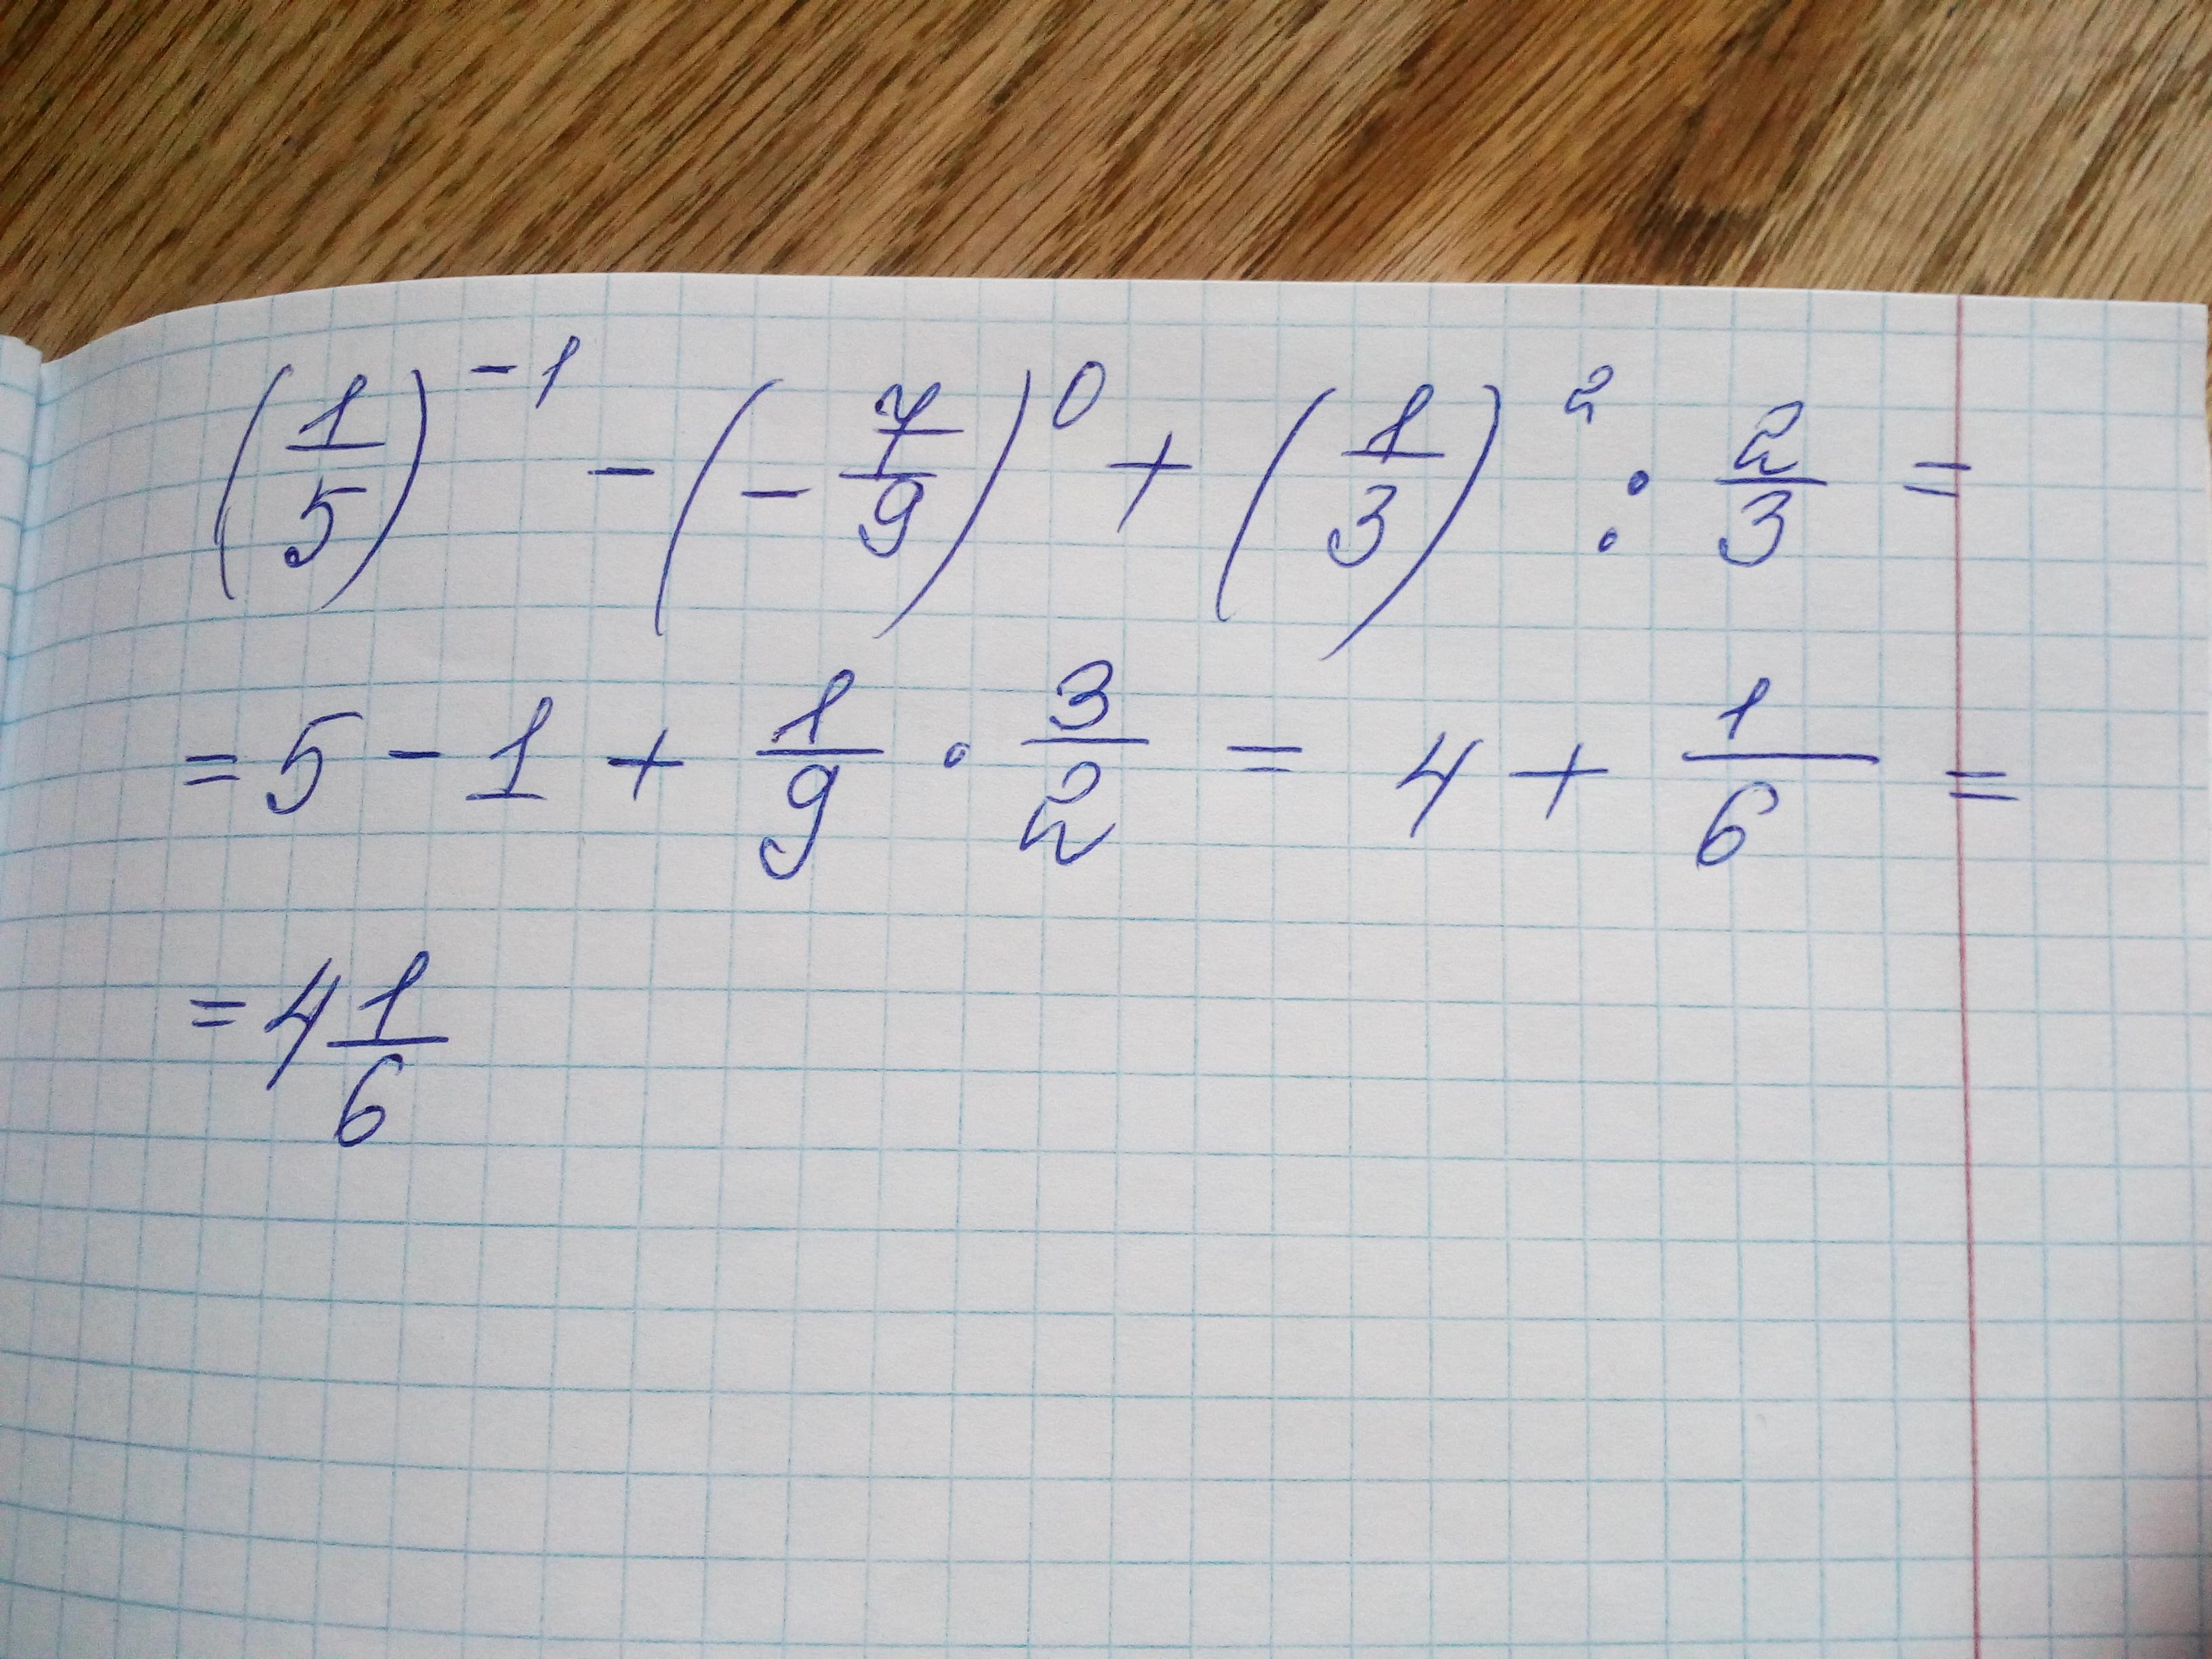 (1/5)^-1 - (-7/9)^0 + (1/3)^2 : 2/3 =
= 5 - 1 + 1/9 · 3/2 = 4 + 1/6 =
= 4 1/6